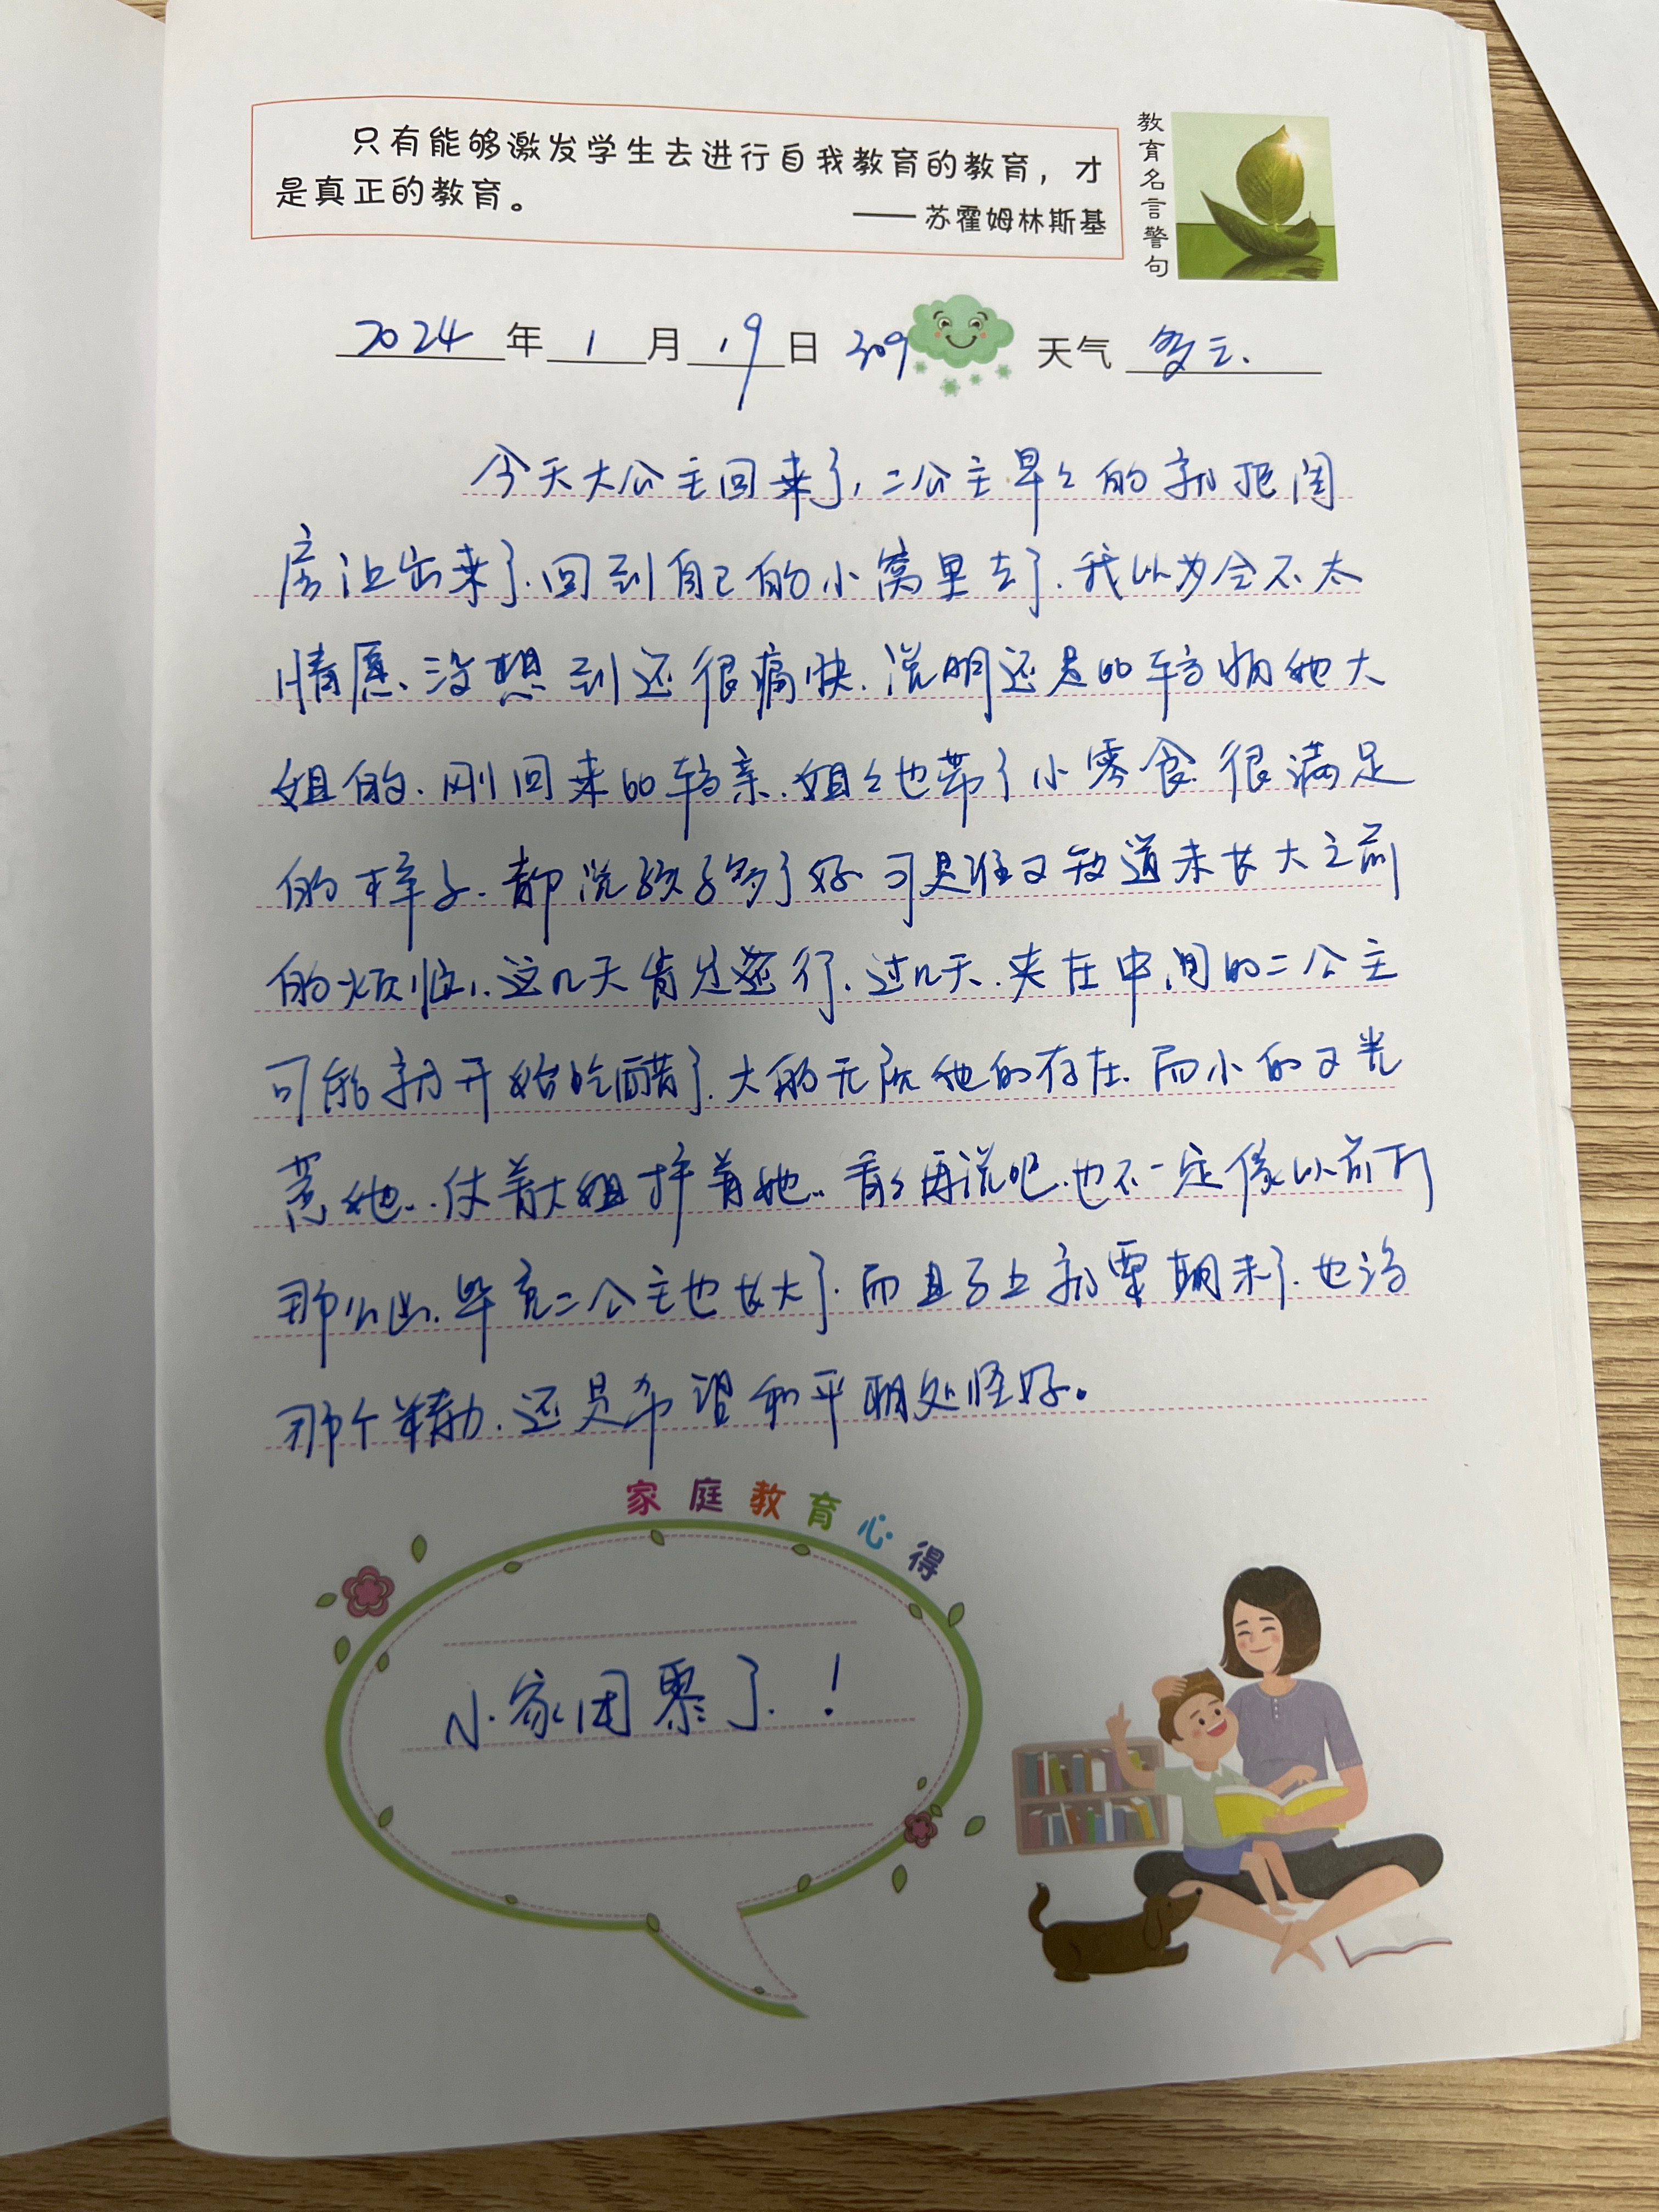 只有能够激发学生去进行自我教育的教育，才
是真正的教育。
——苏霍姆林斯基
教育名言警句
2024年1月19日 309 天气 多云.
今天大公主回来了,二公主早々的就把闺
房让出来了.回到自己的小窝里去了.我以为会不太
情愿.没想到还很痛快.说明还是的拥她大
姐的.刚回来的亲.姐々也带了小零食.很满足
的样子.都说孩子多了好.可是谁又知道未长大之前
的烦恼.这几天肯定还行.过几天.夹在中间的二公主
可能就开始吃醋了.大的无视她的存在.而小的又光
惹她..仗着大姐护着她..看々再说吧.也不一定像以前
那么凶.毕竟二公主也长大了.而且马上就要期末了.也没
那个精力.还是希望和平相处怪好。
家庭教育心得
小家团聚了.！